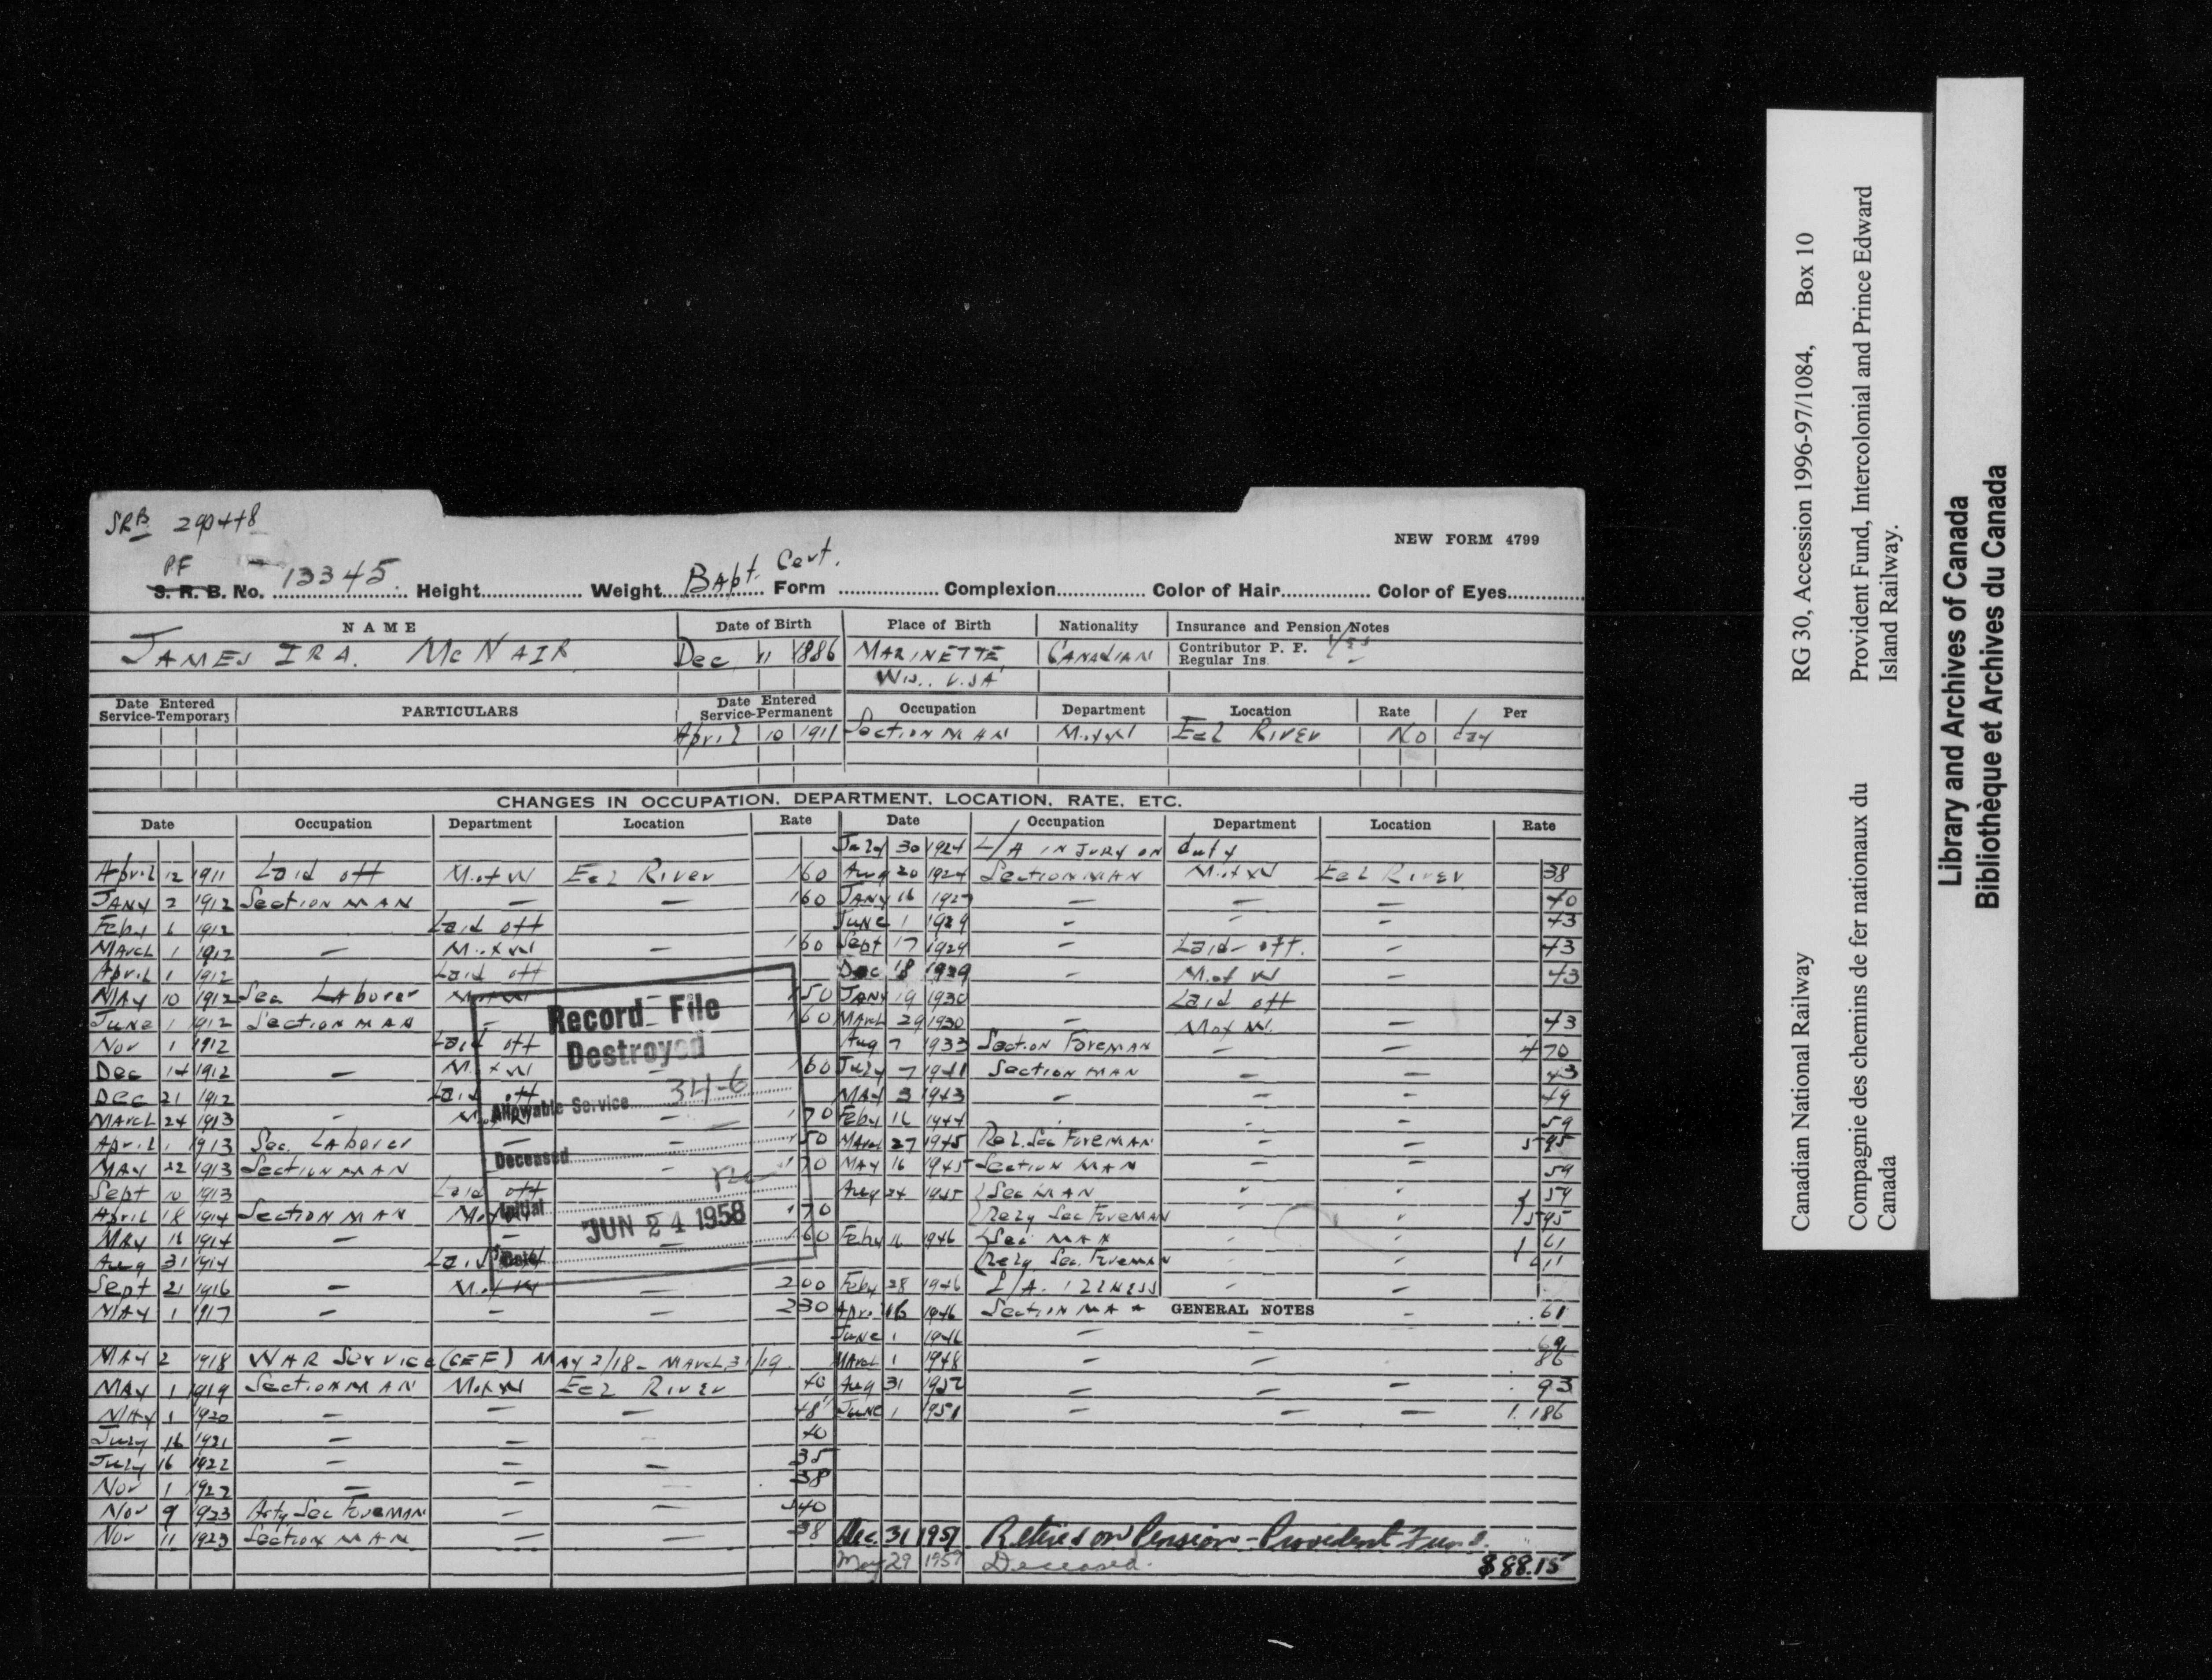 SRB 290448
NEW FORM 4799
PF
S. R. B. No. 13345. Height Weight Bapt. Cert. Form Complexion Color of Hair Color of Eyes
NAME Date of Birth Place of Birth Nationality Insurance and Pension Notes
JAMES IRA. McNAIR Dec 11 1886 MARINETTE, CANADIAN Contributor P. F. Yes
Regular Ins.
Wis.. U.S.A
Date Entered Service-Temporary PARTICULARS Date Entered Service-Permanent Occupation Department Location Rate Per
April 10 1911 Section MAN M.of W Eel River day
CHANGES IN OCCUPATION, DEPARTMENT, LOCATION, RATE, ETC.
Date Occupation Department Location Rate
April 12 1911 Laid off M.of W Eel River 160
JANY 2 1912 Section MAN — — 160
Feby 6 1912 Laid off
March 1 1912 — M.of W — 160
April 1 1912 Laid off
MAY 10 1912 Sec Laborer M.of W — 150
June 1 1912 Section MAN — — 160
Nov 1 1912 Laid off
Dec 14 1912 — M.of W — 160
Dec 21 1912 Laid off
March 24 1913 - M.of W — 170
April 1 1913 Sec. Laborer — — 150
MAY 22 1913 Section MAN — 170
Sept 10 1913 Laid off
April 18 1914 Section MAN M.of W 170
MAY 16 1914 — — 160
Aug 31 1914 Laid off
Sept 21 1916 — M.of W — 200
MAY 1 1917 — — — 230
MAY 2 1918 WAR Service (CEF) MAY 2/18 - March 31/19
MAY 1 1919 Section MAN M.of W Eel River 40
MAY 1 1920 — — — 48
July 16 1921 — — — 40
July 16 1922 — — — 35
Nov 1 1922 — — — 38
Nov 9 1923 Actg Sec Foreman — — 340
Nov 11 1923 Section MAN — — 38
Record File
Destroyed
Allowable Service 34-6
Deceased
Initial
JUN 24 1958
Date
Date Occupation Department Location Rate
July 30 1924 L/A INJURY ON duty
Aug 20 1924 Section MAN M.of W Eel River 38
JANY 16 1927 — — — 40
June 1 1929 - - — 43
Sept 17 1929 - Laid-off. - 43
Dec 18 1929 - M.of W — 43
JANY 19 1930 Laid off
March 29 1930 - M of W. — 43
Aug 7 1933 Section Foreman — — 470
July 7 1941 Section MAN — — 43
MAY 3 1943 - - - 49
Feby 16 1944 - - - 59
March 27 1945 Rel. Sec Foreman - - 595
MAY 16 1945 Section MAN — — 59
Aug 24 1945 Sec MAN 59
Relg Sec Foreman 595
Feby 16 1946 Sec MAN 61
Relg. Sec. Foreman 611
Feby 28 1946 L/A. ILLNESS - -
Apr. 16 1946 Section MAN GENERAL NOTES - 61
June 1 1946 — — - 69
March 1 1948 — — — 86
Aug 31 — — — 93
June 1 1951 — — — 1.186
Dec. 31 1951 Retired on Pension - Provident Fund.
$88.15
May 29 1957 Deceased.
Canadian National Railway RG 30, Accession 1996-97/1084, Box 10
Compagnie des chemins de fer nationaux du Canada Provident Fund, Intercolonial and Prince Edward Island Railway.
Library and Archives of Canada
Bibliothèque et Archives du Canada